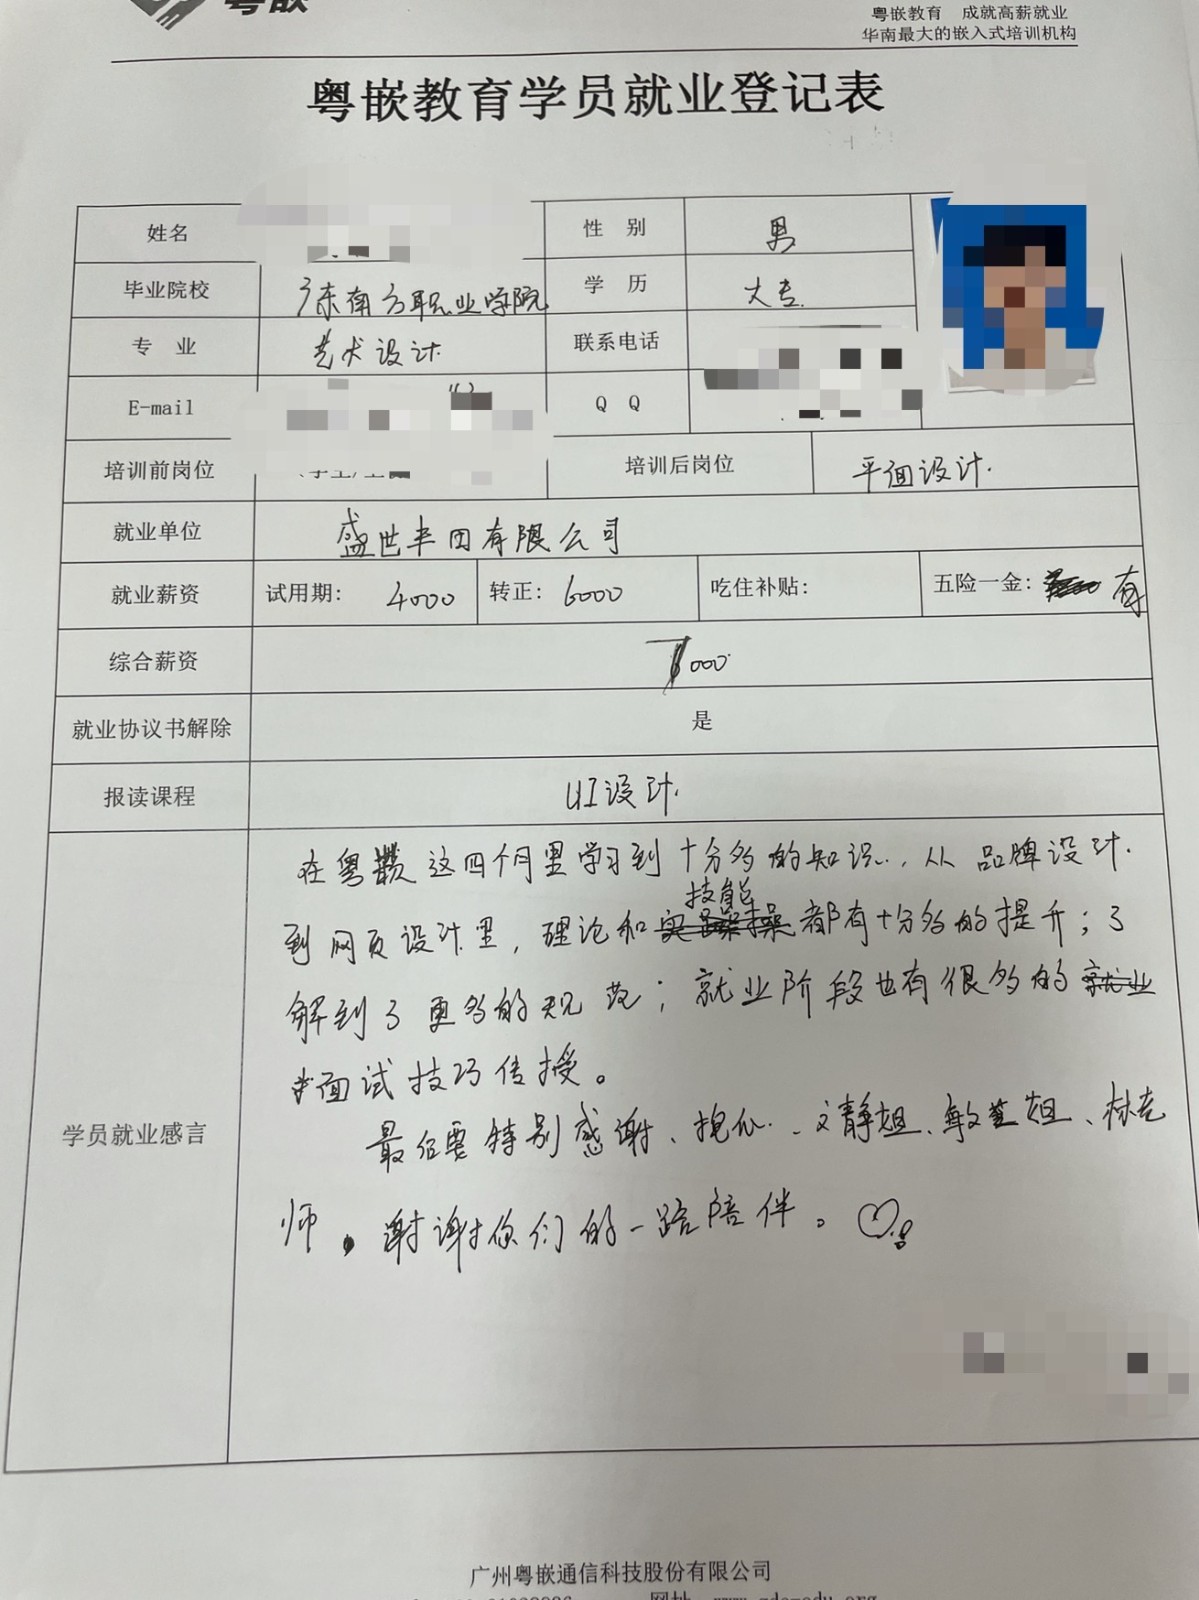 粤嵌
粤嵌教育 成就高薪就业
华南最大的嵌入式培训机构
粤嵌教育学员就业登记表
姓名 性 别 男
毕业院校 广东南方职业学院 学 历 大专
专 业 艺术设计 联系电话
E-mail Q Q
培训前岗位 培训后岗位 平面设计.
就业单位 盛世丰田有限公司
就业薪资 试用期: 4000 转正: 6000 吃住补贴: 五险一金: 有
综合薪资 7000
就业协议书解除 是
报读课程 UI设计.
学员就业感言
在粤嵌这四个月里学习到十分多的知识., 从品牌设计.
技能
到网页设计里, 理论和 都有十分多的提升; 了
解到了更多的规范; 就业阶段也有很多的就业
面试技巧传授。
最后要特别感谢、 文静姐、敏 姐、林老
师。谢谢你们的一路陪伴。
广州粤嵌通信科技股份有限公司